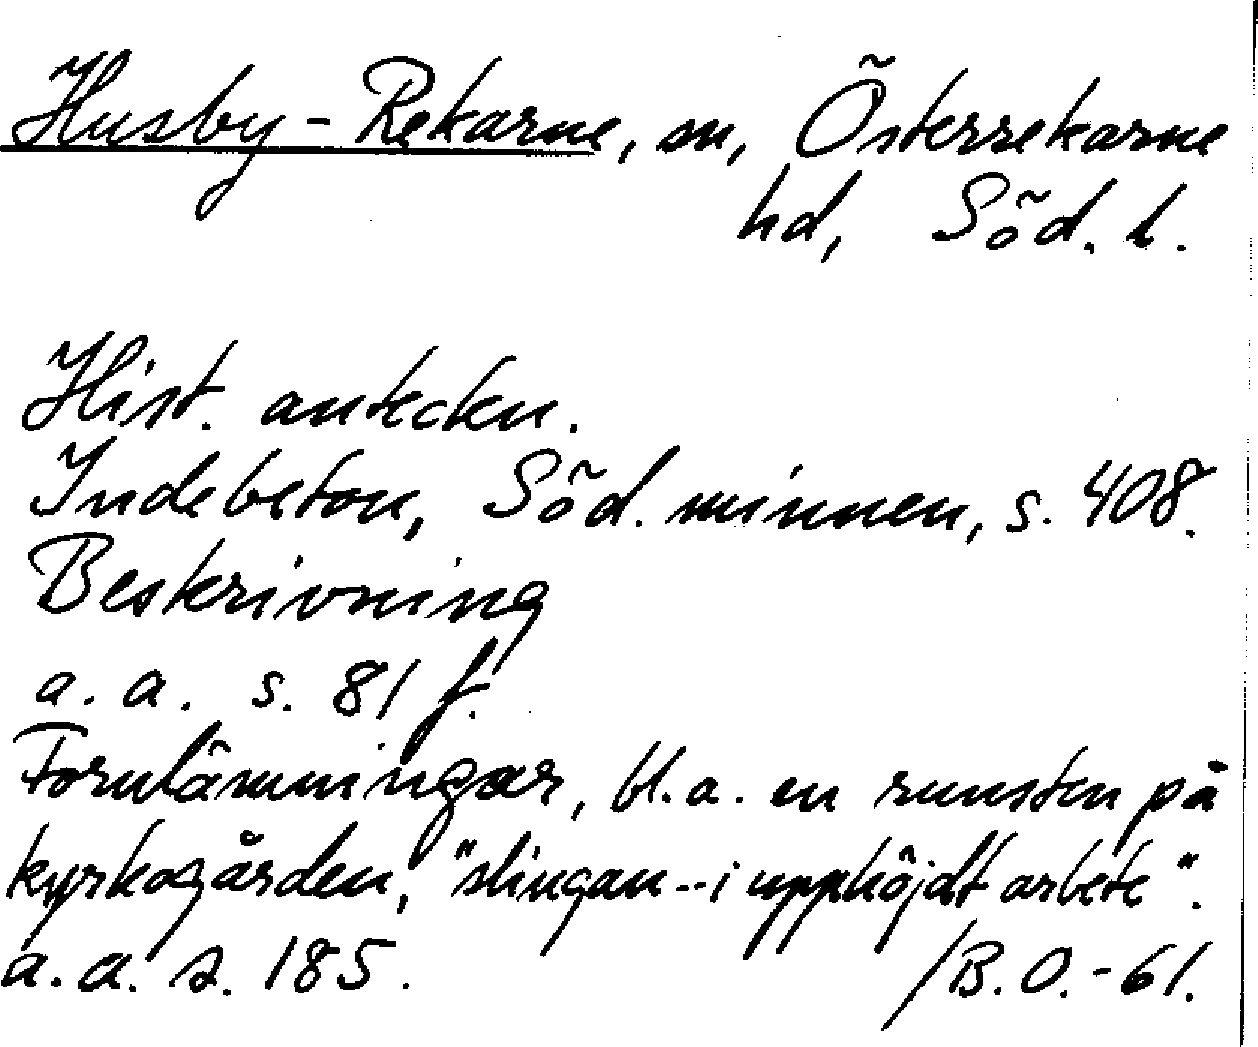 Husby-Rekarne, sn, Österrekarne
hd, Söd. l.
Hist. anteckn.
Indebetou, Söd. minnen, s. 408.
Beskrivning
a. a. s. 81 f.
Fornlämningar, bl. a. en runsten på
kyrkogården, "slingan -- i upphöjdt arbete".
a. a. s. 185. /B. O. -61.